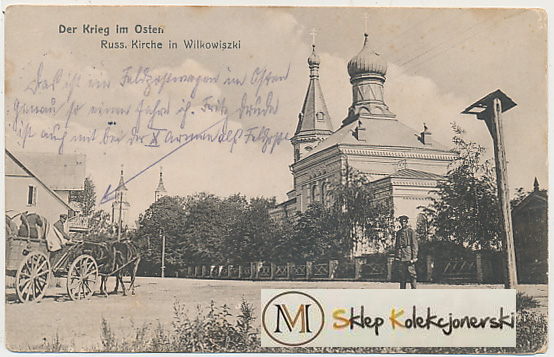 Der Krieg im Osten
Russ. Kirche in Wilkowiszki
Das ist ein Feldpostwagen im Osten
Genau so einen fahre ich. Fritz
ist auch mit bei der X Armee als Feldpost
M Sklep Kolekcjonerski